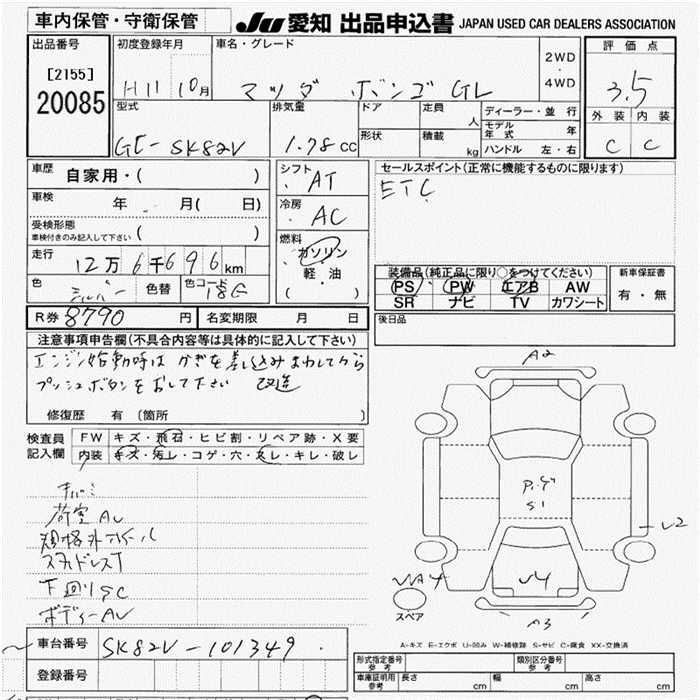 車内保管・守衛保管
JU 愛知 出品申込書 JAPAN USED CAR DEALERS ASSOCIATION
出品番号
[2155]
20085
初度登録年月
H11 10月
車名・グレード
マツダ ボンゴ GL
2WD
・
4WD
評価点
3.5
外装 内装
C C
型式
GE-SK82V
排気量
1.78 cc
ドア
形状
定員
人
積載
kg
ディーラー・並 行
モデル年式 年
ハンドル 左・右
車歴 自家用・( )
車検 年 月( 日)
受検形態
車検付きのみ記入して下さい ( )
走行 12万6千696km
色 シルバー 色替 色コード 18G
シフト AT
冷房 AC
燃料
ガソリン
・
軽・油
( )
セールスポイント(正常に機能するものに限ります)
ETC
装備品(純正品に限り○をつけてください)
PS PW エアB AW
SR ナビ TV カワシート
新車保証書
有・無
R券 8790 円 名変期限 月 日
後日品
注意事項申告欄(不具合内容等は具体的に記入して下さい)
エンジン始動時は かぎを差し込みまわしてから
プッシュボタンをおして下さい 改造
修復歴 有 (箇所 )
検査員
記入欄
FW キズ・飛石・ヒビ割・リペア跡・X要
内装 キズ・汚レ・コゲ・穴・スレ・キレ・破レ
荷室AU
規格外ホイール
スタッドレスT
下回りSC
ボディーAU
A2
P.ゲ
S1
U2
U4
A3
スペア
A-キズ E-エクボ U-凹み W-補修跡 S-サビ C-腐食 XX-交換済
車台番号 SK82V-101349
登録番号
形式指定番号
参考
類別区分番号
参考
車庫証明用
参考
長さ cm 幅 cm 高さ cm